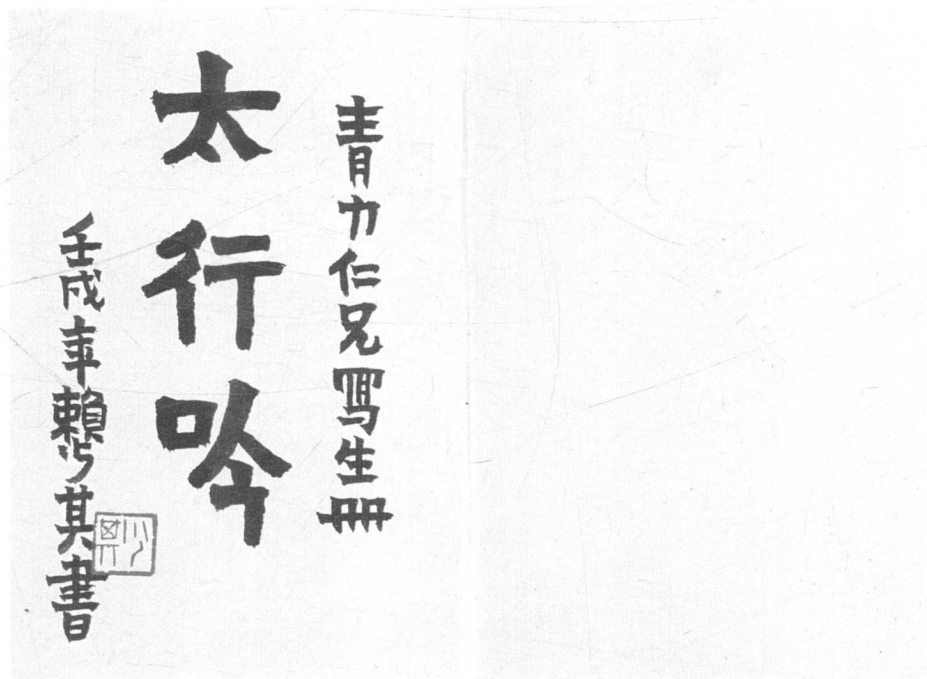 青力仁兄冩生册
太行吟
壬戌年賴少其書